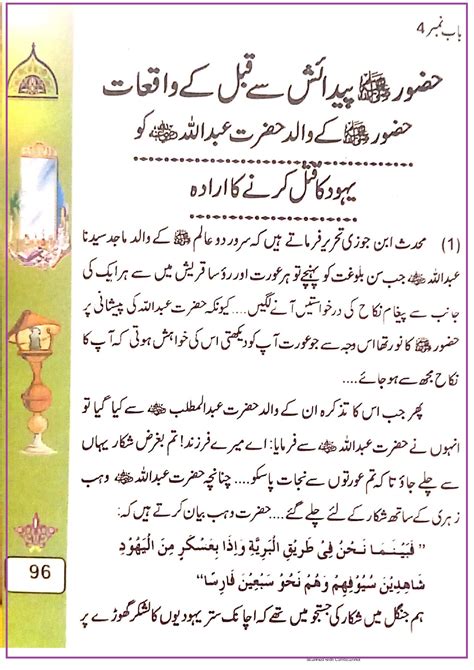 باب نمبر 4
حضور ﷺ پیدائش سے قبل کے واقعات
حضور ﷺ کے والد حضرت عبداللہ ؓ کو
یہود کا قتل کرنے کا ارادہ
(1) محدث ابن جوزی تحریر فرماتے ہیں کہ سرور دو عالم ﷺ کے والد ماجد سیدنا
عبداللہ ؓ جب سن بلوغت کو پہنچے تو ہر عورت اور رؤسا قریش میں سے ہر ایک کی
جانب سے پیغام نکاح کی درخواستیں آنے لگیں.... کیونکہ حضرت عبداللہ کی پیشانی پر
حضور ﷺ کا نور تھا اس وجہ سے جو عورت آپ کو دیکھتی اس کی خواہش ہوتی کہ آپ کا
نکاح مجھ سے ہو جائے....
پھر جب اس کا تذکرہ ان کے والد حضرت عبدالمطلب ؓ سے کیا گیا تو
انہوں نے حضرت عبداللہ ؓ سے فرمایا: اے میرے فرزند! تم بغرض شکار یہاں
سے چلے جاؤ تا کہ تم عورتوں سے نجات پاسکو.... چنانچہ حضرت عبداللہ ؓ وہب
زہری کے ساتھ شکار کے لئے چلے گئے.... حضرت وہب بیان کرتے ہیں کہ:
”فَبَيْنَمَا نَحْنُ فِى طَرِيْقِ الْبَرِيَّةِ وَاِذَا بِعَسْكَرٍ مِنَ الْيَهُوْدِ
شَاهِدِيْنَ سُيُوْفِهِمْ وَهُمْ نَحْوَ سَبْعِيْنَ فَارِسًا“
ہم جنگل میں شکار کی جستجو میں تھے کہ اچانک ستر یہودیوں کا لشکر گھوڑے پر
96